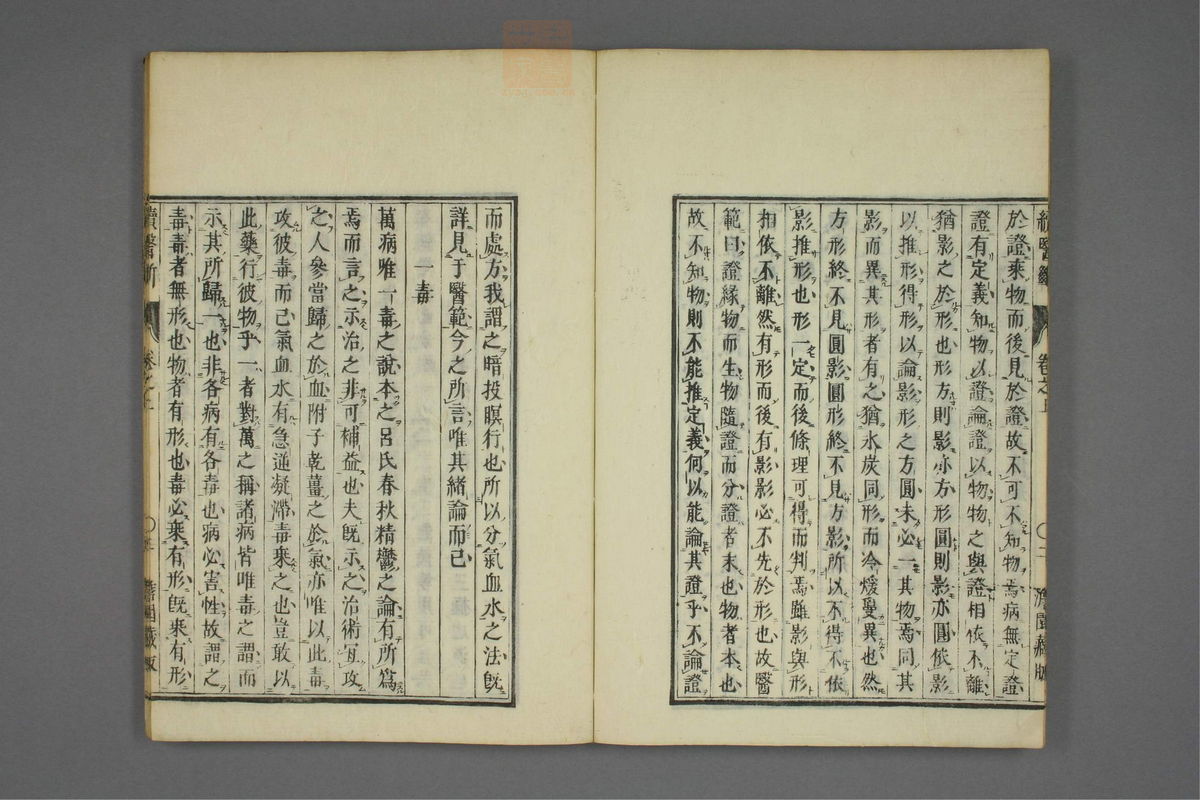 續醫斷 卷之上 〇二 藏版
於證乘物而後見於證故不可不知物焉病無定證
證有定義知物以證論證以物物之與證相依不離
猶影之於形也形方則影亦方形圓則影亦圓依影
以推形得形以論影形之方圓未必一其物焉同其
影而異其形者有之猶氷炭同形而冷煖憂異也然
方形終不見圓影圓形終不見方影所以不得不依
影推形也形一定而後條理可得而判焉雖影與形
相依不離然有形而後有影影必不先於形也故醫
範曰證緣物而生物隨證而分證者末也物者本也
故不知物則不能推定義何以能論其證乎不論證
而處方我謂之暗投瞑行也所以分氣血水之法旣
詳見于醫範今之所言唯其緒論而已
一毒
萬病唯一毒之說本之呂氏春秋精鬱之論有所爲
焉而言之示治之非可補益也夫旣示之治術宜攻
之人參當歸之於血附子乾薑之於氣亦唯以此毒
攻彼毒而已氣血水有急逆凝滯毒乘之也豈敢以
此藥行彼物乎一者對萬之稱諸病皆唯毒之謂而
示其所歸一也非各病有各毒也病必害性故謂之
毒毒者無形也物者有形也毒必乘有形旣乘有形
續醫斷 卷之上 〇 藏版